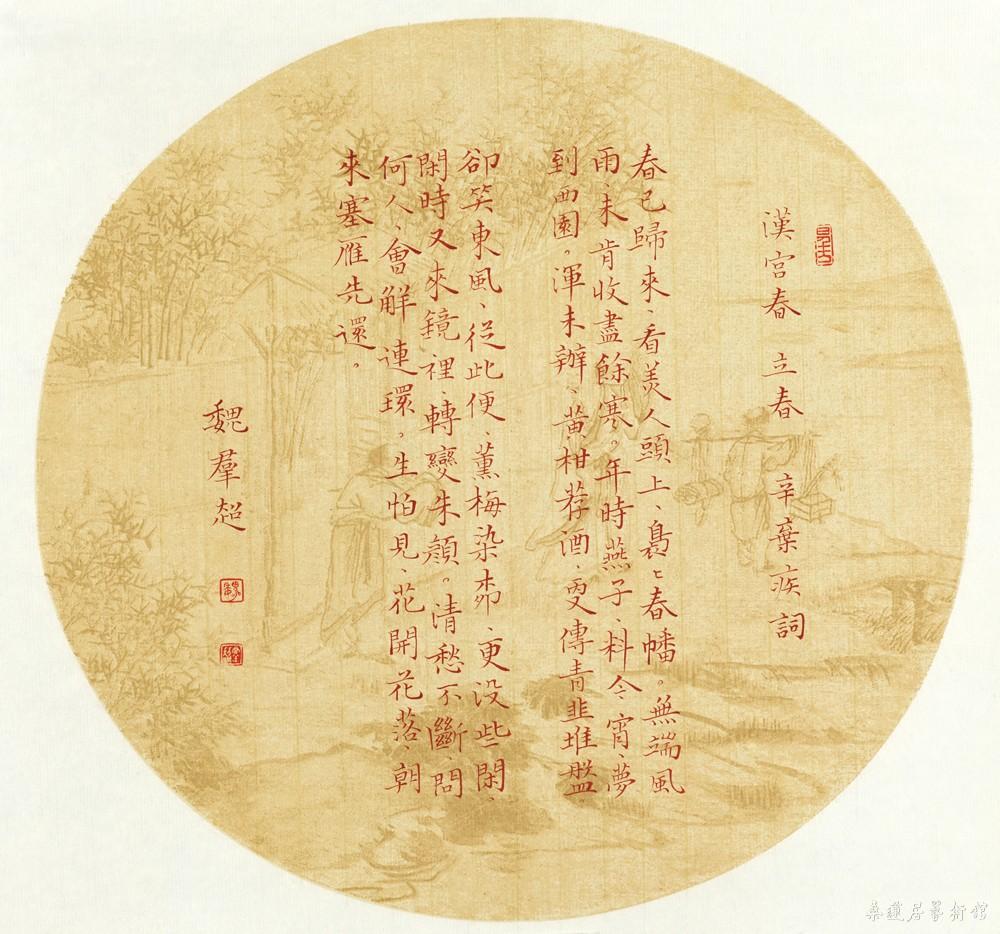 漢宮春 立春 辛棄疾詞
春已歸來、看美人頭上、裊〻春幡。無端風
雨、未肯收盡餘寒。年時燕子、料今宵、夢
到西園。渾未辦、黃柑荐酒、更傳青韭堆盤、
卻笑東風、從此便、薰梅染柳、更没些閑、
閑時又來鏡裡、轉變朱顏。清愁不斷、問
何人、會解連環。生怕見、花開花落、朝
來塞雁先還。
魏羣超
桑蓮居藝術館